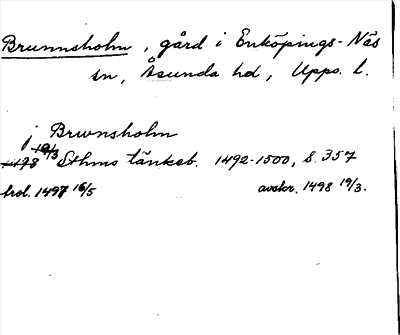 Brunnsholm, gård i Enköpings-Näs
sn, Åsunda hd, Upps. l.
j Brwnsholm
19/3
1498 Sthms tänkeb. 1492-1500, s. 357
hol. 1497 16/5 avskr. 1498 19/3.